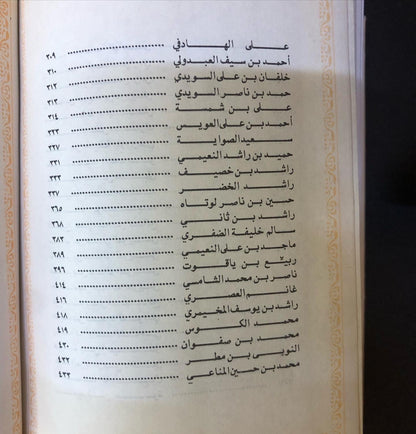 على الهادفي ٣٠٩
أحمد بن سيف العبدولي ٣١٠
خلفان بن على السويدي ٣١٢
حمد بن ناصر السويدي ٣١٣
على بن شمسة ٣١٤
أحمد بن على العويس ٣٢٣
سعيد الصواية ٣٢٧
حميد بن راشد النعيمي ٣٣١
راشد بن خصيف ٣٣٣
راشد الخضر ٣٣٧
حسين بن ناصر لوتاه ٣٦٥
راشد بن ثاني ٣٦٨
سالم خليفة الظفري ٣٨٣
ماجد بن على النعيمي ٣٨٩
ربيّع بن ياقوت ٣٩٦
ناصر بن محمد الشامسي ٤١٤
غانم العصري ٤١٦
راشد بن يوسف المخيمري ٤١٨
محمد الكوس ٤١٩
محمد بن صفوان ٤٣٠
النويي بن مطر ٤٣٢
محمد بن حسين المناعي ٤٣٣